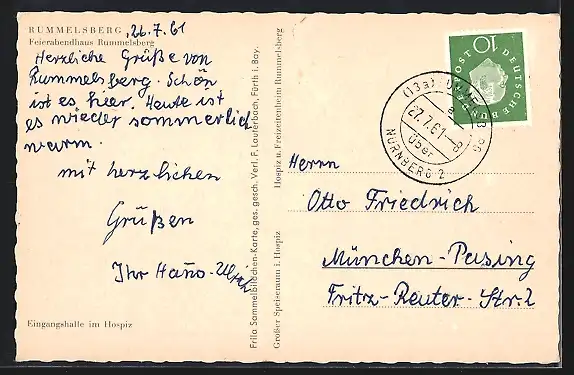 RUMMELSBERG, 26.7.61
Feierabendhaus Rummelsberg
Herzliche Grüße von
Rummelsberg. Schön
ist es hier. Heute ist
es wieder sommerlich
warm.
mit herzlichen
Grüßen
Ihr Hans-Ulrich
Eingangshalle im Hospiz
Frila Sammelbildchen-Karte, ges. gesch. Verl. F. Lauterbach, Fürth i. Bay.
Großer Speiseraum i. Hospiz
Hospiz u. Freizeitenheim Rummelsberg
DEUTSCHE BUNDESPOST
10
(13a)
27.7.61-8
a
über
NÜRNBERG 2
Herrn
Otto Friedrich
München-Pasing
Fritz-Reuter-Str. 2